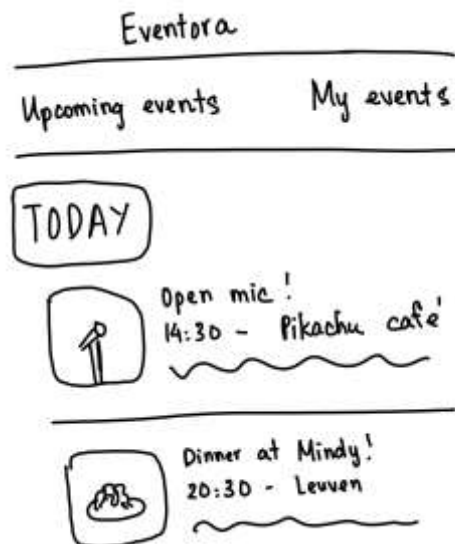 Eventora
Upcoming events My events
TODAY
Open mic!
14:30 - Pikachu café
Dinner at Mindy!
20:30 - Leuven